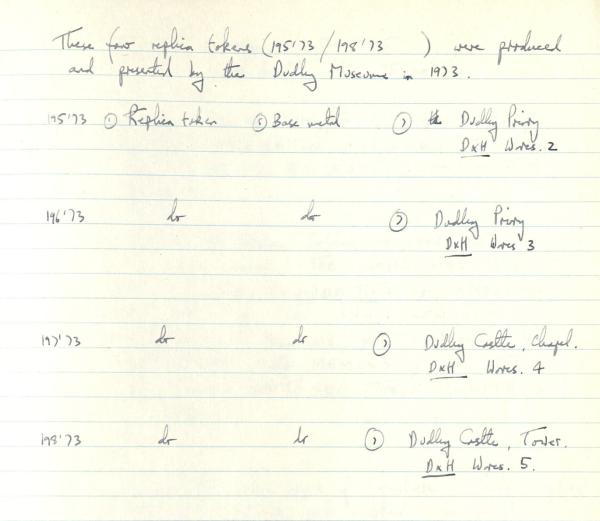 These four replica tokens (195'73/198'73 ) were produced
and presented by the Dudley Museum in 1973.
195'73 ① Replica token ⑥ Base metal ⑦ Dudley Priory
D&H Worcs. 2
196'73 do do ⑦ Dudley Priory
D&H Worcs 3
197'73 do do ⑦ Dudley Castle, Chapel.
D&H Worcs. 4
198'73 do do ⑦ Dudley Castle, Tower.
D&H Worcs. 5.